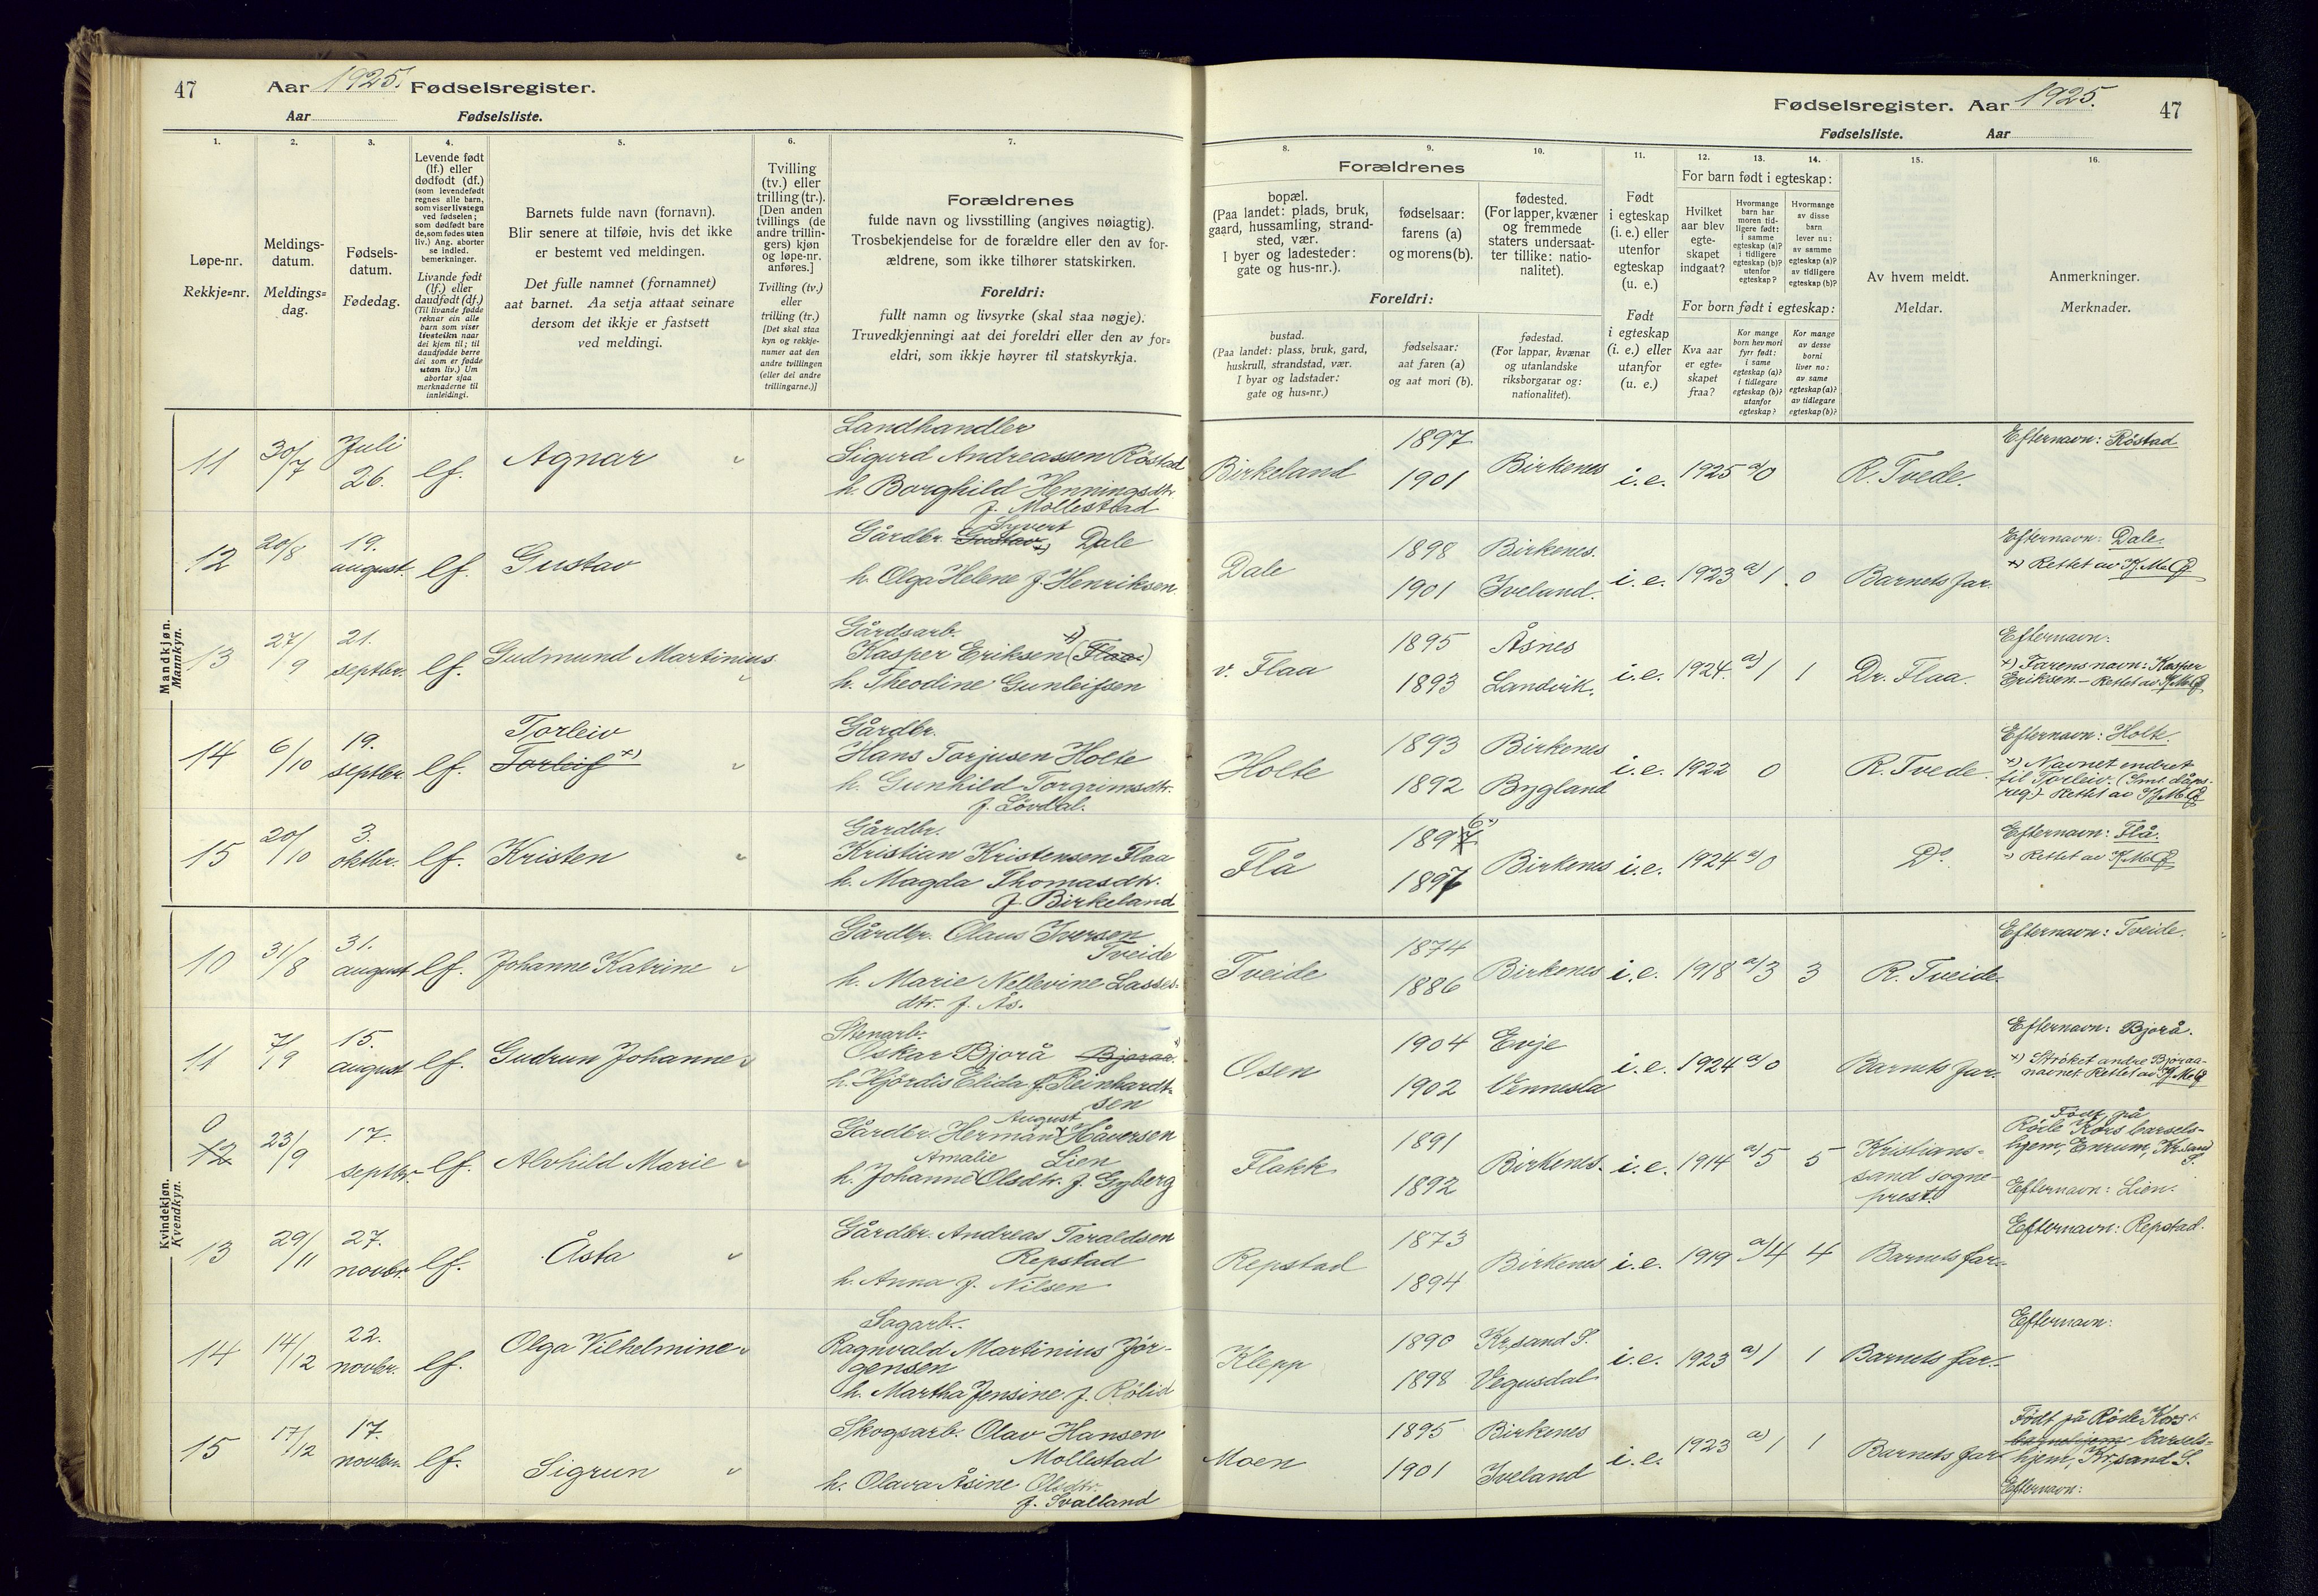 47 Aar 1925. Fødselsregister.
Aar Fødselsliste.
1. 2. 3. 4. 5. 6. 7.
Løpe-nr.
Rekkje=nr.
Meldings-
datum.
Meldings=
dag.
Fødsels-
datum.
Fødedag.
Levende født
(lf.) eller
dødfødt (df.)
(som levendefødt
regnes alle barn,
som viser livstegn
ved fødselen;
som dødfødt bare
de, som fødes uten
liv.) Ang. aborter
se indled.
bemerkninger.
Livande født
(lf.) eller
daudfødt (df.)
(Til livande fødde
reknar ein alle
barn som viser
livsteikn naar
dei kjem til; til
daudfødde berre
dei som er fødde
utan liv.) Um
abortar sjaa
merknaderne til
innleidingi.
Barnets fulde navn (fornavn).
Blir senere at tilføie, hvis det ikke
er bestemt ved meldingen.
Det fulle namnet (fornamnet)
aat barnet. Aa setja attaat seinare
dersom det ikkje er fastsett
ved meldingi.
Tvilling
(tv.) eller
trilling (tr.).
[Den anden
tvillings (de
andre trillin-
gers) kjøn
og løpe-nr.
anføres.]
Tvilling (tv.)
eller
trilling (tr.)
[Det skal staa
kyn og rekkje-
numer aat den
andre tvillingen
(eller dei andre
trillingarne.)]
Forældrenes
fulde navn og livsstilling (angives nøiagtig).
Trosbekjendelse for de forældre eller den av for-
ældrene, som ikke tilhører statskirken.
Foreldri:
fullt namn og livsyrke (skal staa nøgje).
Truvedkjenningi aat dei foreldri eller den av for=
eldri, som ikkje høyrer til statskyrkja.
Mandkjøn.
Mannkyn.
11 30/7 Juli 26. lf. Agnar
Landhandler
Sigurd Andreassen Røstad
h. Borghild Henningsdtr.
f. Mollestad
12 20/8 19. august. lf. Gustav
Syvert
Gårdbr. Gustav x) Dale
h. Olga Helene f. Henriksen
13 27/9 21. septbr. lf. Gudmund Martinius
Gårdsarb.
Kasper Eriksen x) (Flaa)
h. Theodine Gunleifsen
14 6/10 19. septbr. lf. Torleiv
Torleif x)
Gårdbr.
Hans Torjusen Holte
h. Gunhild Torgrimsdtr.
f. Lövdal.
15 20/10 3. oktbr. lf. Kristen
Gårdbr.
Kristian Kristensen Flaa
h. Magda Thomasdtr.
f. Birkeland
Kvindekjøn.
Kvendkyn.
10 31/8 31. august lf. Johanne Katrine
Gårdbr. Olaus Iversen
Tveide
h. Marie Nellevine Lasses-
dtr. f. Ås.
11 7/9 15. august lf. Gudrun Johanne
Stenarb.
Oskar Bjorå Bjoraa x)
h. Hjördis Elida f. Reinhardt-
sen
0 12 23/9 17. septbr. lf. Alvhild Marie
August
Gårdbr. Herman x Håversen
Amalie Lien
h. Johanne x Olsdtr. f. Gyberg
13 29/11 27. novbr. lf. Åsta
Gårdbr. Andreas Taraldsen
Repstad
h. Anna f. Nilsen
14 14/12 22. novbr. lf. Olga Vilhelmine
Sagarb.
Ragnvald Martinius Jör-
gensen
h. Martha Jensine f. Rölid
15 17/12 17. novbr. lf. Sigrun
Skogsarb. Olav Hansen
Mollestad
h. Olava Åsine Olsdtr.
f. Svalland
Fødselsregister. Aar 1925. 47
Fødselsliste. Aar
8. 9. 10. 11. 12. 13. 14. 15. 16.
Forældrenes
bopæl.
(Paa landet: plads, bruk,
gaard, hussamling, strand-
sted, vær.
I byer og ladesteder:
gate og hus-nr.).
fødselsaar:
farens (a)
og morens (b).
fødested.
(For lapper, kvæner
og fremmede
staters undersaat-
ter tillike: natio-
nalitet).
Foreldri:
bustad.
(Paa landet: plass, bruk, gard,
huskrull, strandstad, vær.
I byar og ladstader:
gate og hus=nr.)
fødselsaar:
aat faren (a)
og aat mori (b).
fødestad.
(For lappar, kvænar
og utanlandske
riksborgarar og:
nationalitet).
Født
i egteskap
(i. e.) eller
utenfor
egteskap
(u. e.)
Født
i egteskap
(i. e.) eller
utanfor
(u. e.)
For barn født i egteskap:
Hvilket
aar blev
egte-
skapet
indgaat?
Hvormange
barn har
moren tid-
ligere født:
i samme
egteskap (a)?
i tidligere
egteskap (b)?
utenfor
egteskap?
Hvormange
av disse
barn
lever nu:
av samme
egteskap (a)?
av tidligere
egteskap (b)?
For born født i egteskap:
Kva aar
er egte-
skapet
fraa?
Kor mange
born hev mori
fyrr født:
i same
egteskap (a)?
i tidlegare
egteskap (b)?
utanfor
egteskap?
Kor mange
av desse
borni
liver no:
av same
egteskap (a)?
av tidlegare
egteskap (b)?
Av hvem meldt.
Meldar.
Anmerkninger.
Merknader.
Birkeland 1897 1901 Birkenes i.e. 1925 a) 0 R. Tvede.
Efternavn: Röstad
Dale 1898 Birkenes.
1901 Iveland. i.e. 1923 a) 1 0 Barnets far.
Efternavn: Dale.
x) Rettet av
v. Flaa 1895 Åsnes
1893 Landvik. i.e. 1924. a) 1 1 Dr. Flaa.
Efternavn:
x) Farens navn: Kasper
Eriksen. – Rettet av
Holte 1893 Birkenes
1892 Bygland i.e. 1922 0 R. Tvede.
Efternavn: Holte.
x) Navnet endret
til Torleiv. (Smt. dåps-
reg.) Rettet av
Flå 1897 6 x)
1897 Birkenes i.e. 1924 a) 0 Do.
Efternavn: Flå.
x) Rettet av
Tveide 1874
1886 Birkenes i.e. 1918 a) 3 3 R. Tveide.
Efternavn: Tveide.
Osen 1904 Evje
1902 Vennesla i.e. 1924 a) 0 Barnets far.
Efternavn: Bjorå.
x) Strøket andre Bjoraa-
navnet. Rettet av
Flakk 1891
1892 Birkenes. i.e. 1914 a) 5 5 Kristians-
sand sogne-
prest.
Født på
Røde Kors barsels-
hjem, Enrum, Kr.sand
S.
Efternavn: Lien.
Repstad 1873
1894 Birkenes i.e. 1919 a) 4 4 Barnets far.
Efternavn: Repstad.
Klepp 1890 Kr.sand S.
1898 Vegusdal i.e. 1923 a) 1 1 Barnets far.
Efternavn:
Moen 1895 Birkenes
1901 Iveland i.e. 1923 a) 1 1 Barnets far
Født på Røde Kors
barnehjem barsels-
hjem, Kr.sand S.
Efternavn: